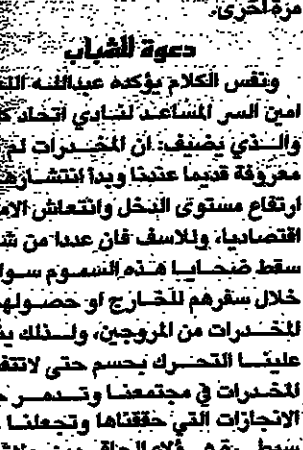 مرة أخرى.
دعوة للشباب
ونفس الكلام يؤكده عبدالله
امين السر المساعد لنادي اتحاد
والـذي يضيف: ان المخـدرات لم
معروفة قديما عندنا وبدأ انتشارها
ارتفاع مستوى الدخل وانتعاش
اقتصاديا، وللاسف فان عددا من
سقط ضحايـا هـذه السموم
خلال سفرهم للخـارج او
للمخـدرات من المروجين، ولـذلك
علينـا التحـرك بحسم حتى لا
المخدرات في مجتمعنـا وتـدمـر
الانجازات التي حققناها وتجعلنـا